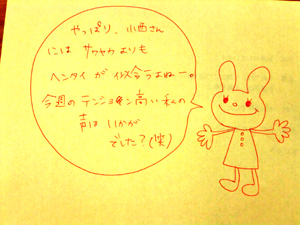 やっぱり、小西さん
には サワヤカ よりも
ヘンタイ が 似合うよねー。
今週の テンション高い 私の
声は いかが
でした?(笑)